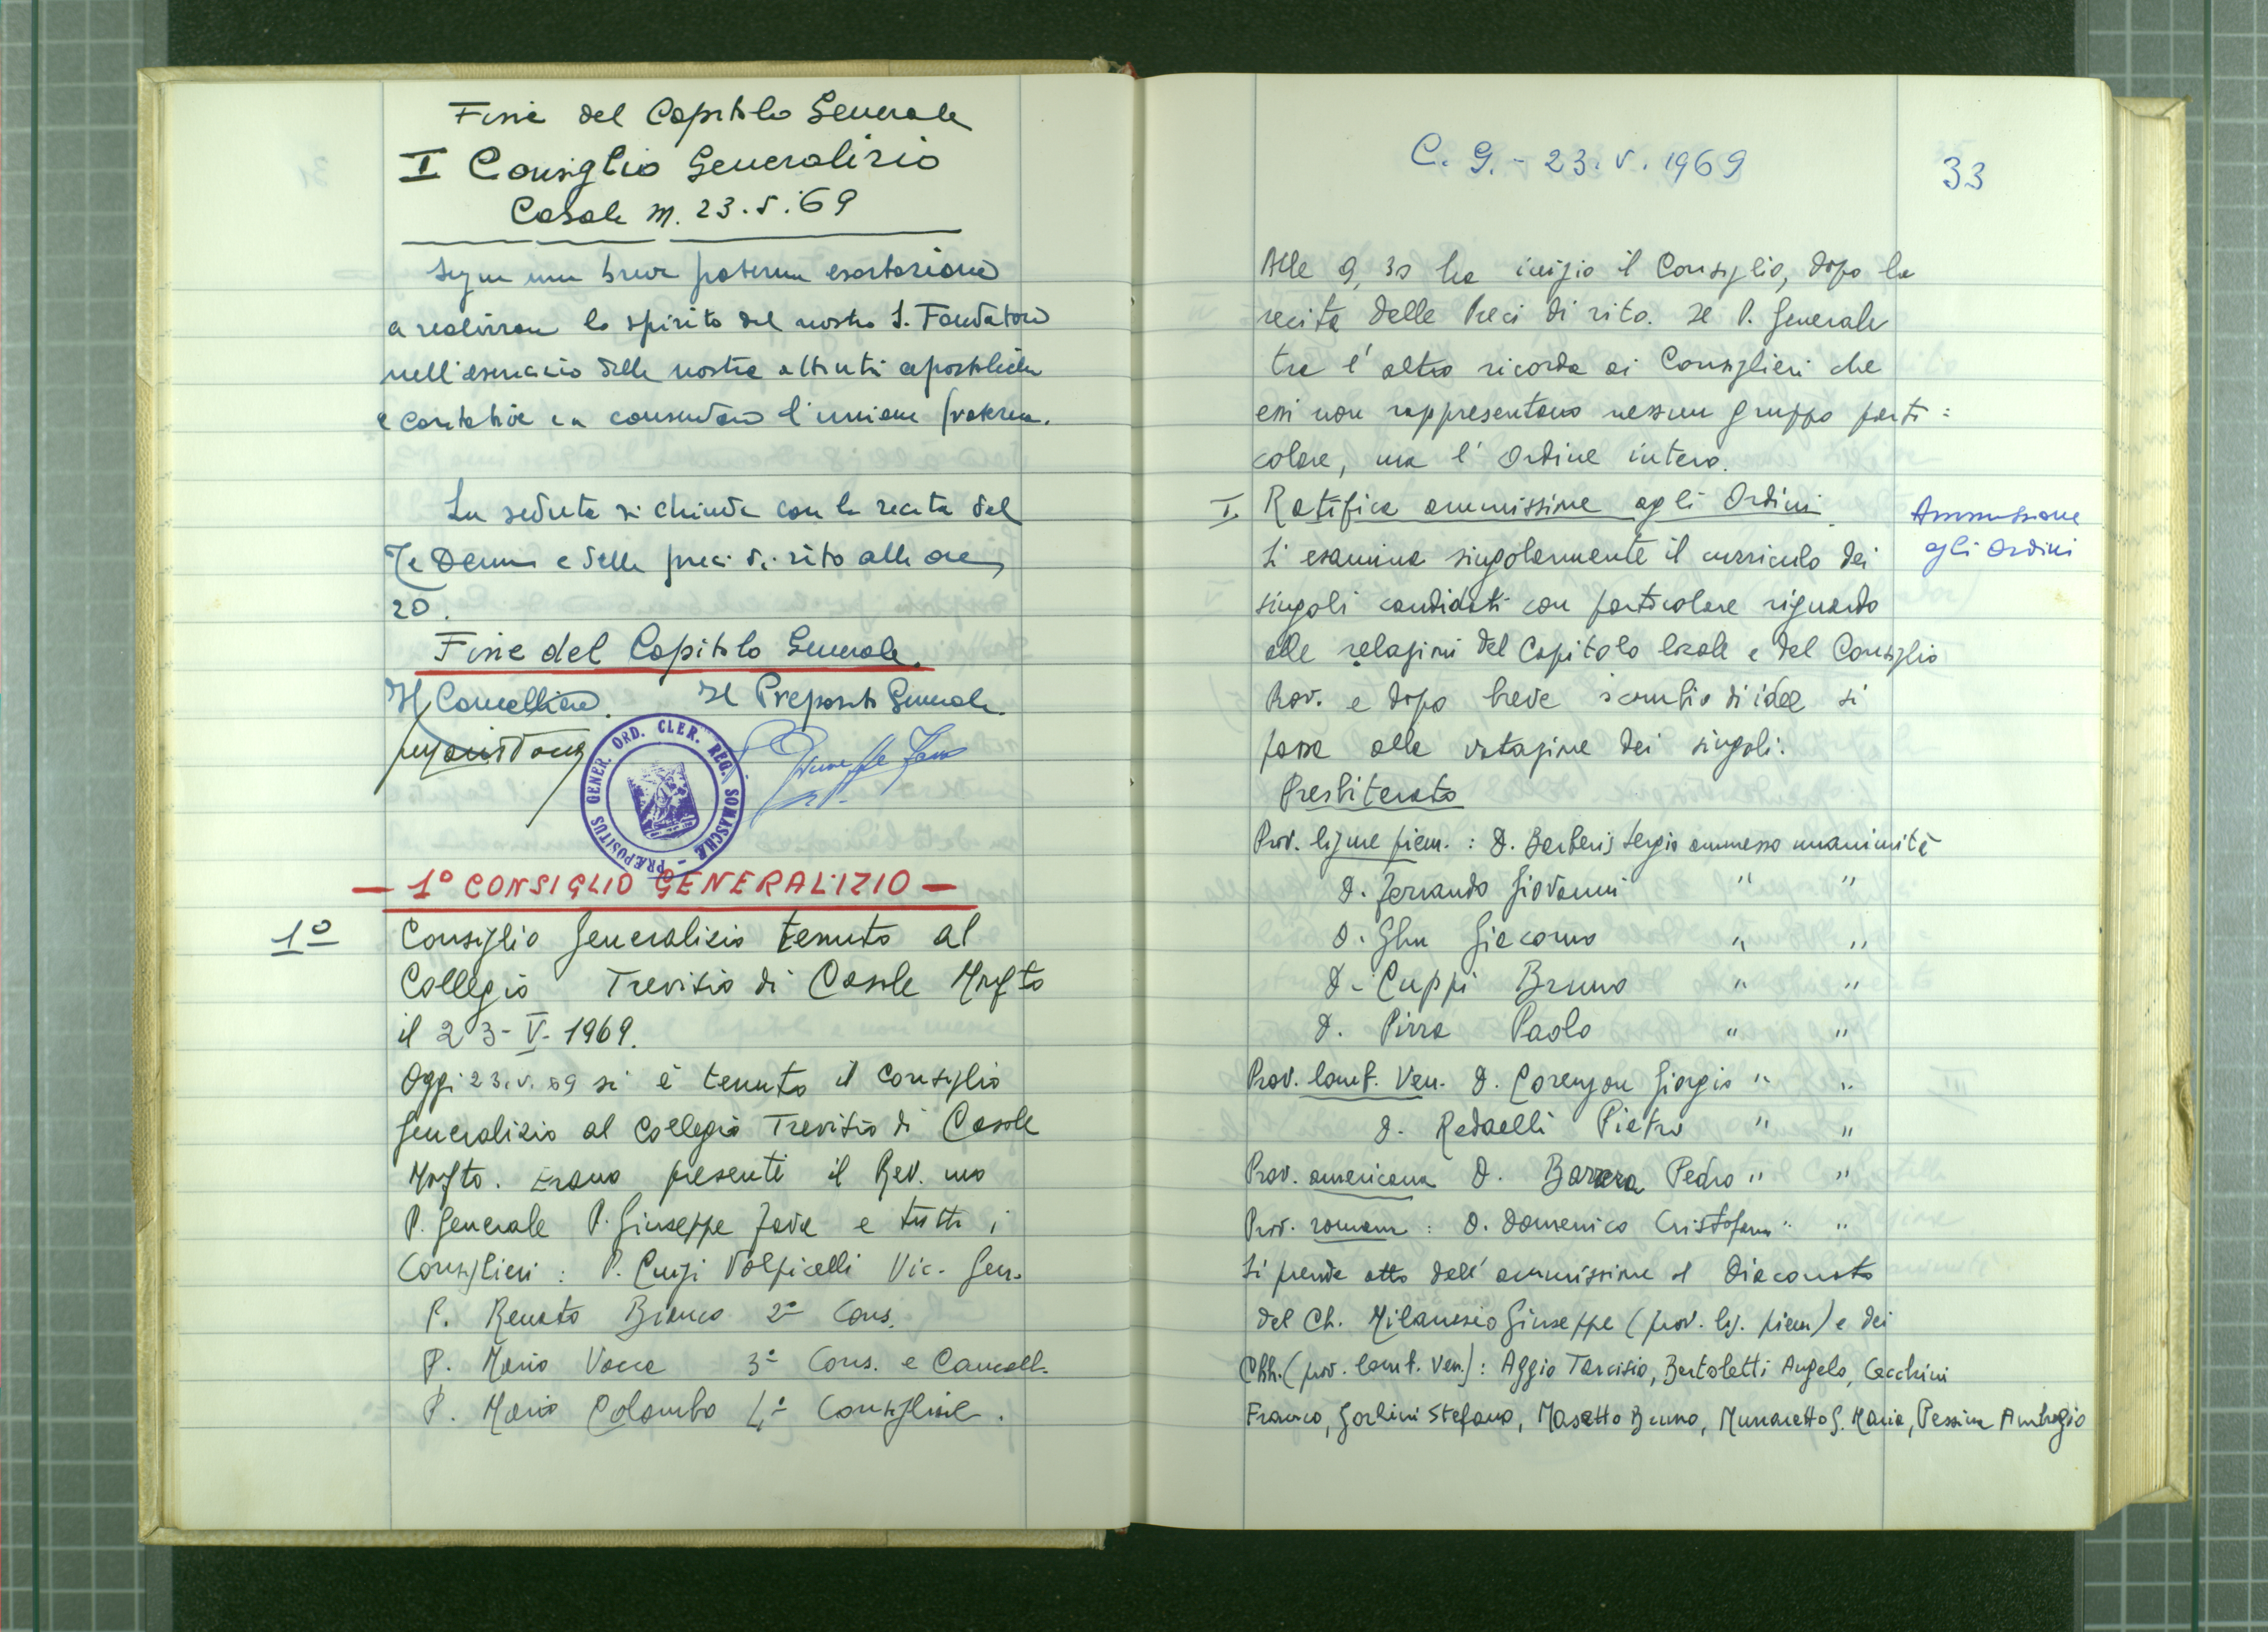 Fine del Capitolo Generale
I Consiglio Generalizio
Casale M. 23.5.69
Segue una breve paterna esortazione
a realizzare lo spirito del nostro S. Fondatore
nell'esercizio delle nostre attività apostoliche
e caritative e a consolidare l'unione fraterna.
La seduta si chiude con la recita del
Te Deum e delle preci di rito alle ore
20.
Fine del Capitolo Generale.
Il Cancelliere. Il Preposito Generale.
PRÆPOSITUS GENER. ORD. CLER. REG. SOMASCHÆ
- 1° CONSIGLIO GENERALIZIO -
1° Consiglio Generalizio tenuto al
Collegio Trevisio di Casale Monf.to
il 23-V-1969.
Oggi 23.V.69 si è tenuto il Consiglio
Generalizio al Collegio Trevisio di Casale
Monf.to. Erano presenti il Rev.mo
P. Generale P. Giuseppe Fava e tutti i
Consiglieri: P. Luigi Volpicelli Vic. Gen.
P. Renato Bianco 2° Cons.
P. Mario Vacca 3° Cons. e Cancell.
P. Mario Colombo 4° Consigliere.
C. G. - 23.V.1969
33
Alle 9,30 ha inizio il Consiglio, dopo la
recita delle Preci di rito. Il P. Generale
tra l'altro ricorda ai Consiglieri che
essi non rappresentano nessun gruppo parti=
colare, ma l'Ordine intero.
I. Ratifica ammissione agli Ordini
Ammissione
agli Ordini
Si esamina singolarmente il curriculo dei
singoli candidati con particolare riguardo
alle relazioni del Capitolo locale e del Consiglio
Prov. e dopo breve scambio di idee si
passa alla votazione dei singoli.
Presbiterato
Prov. ligure piem.: D. Berberis Sergio ammesso unanimità
D. Ferrando Giovanni " "
D. Ghu Giacomo " "
D. Luppi Bruno " "
D. Pirra Paolo " "
Prov. lomb. Ven. D. Lorenzon Giorgio " "
D. Redaelli Pietro " "
Prov. americana D. Barrera Pedro " "
Prov. romana: D. Domenico Cristofaro " "
Si prende atto dell'ammissione al Diaconato
del Ch. Milanesio Giuseppe (prov. lig. piem) e dei
Chh. (prov. lomb. Ven.): Aggio Tarcisio, Bertoletti Angelo, Cecchini
Franco, Gorlini Stefano, Masetto Bruno, Munaretto G. Maria, Pessina Ambrogio